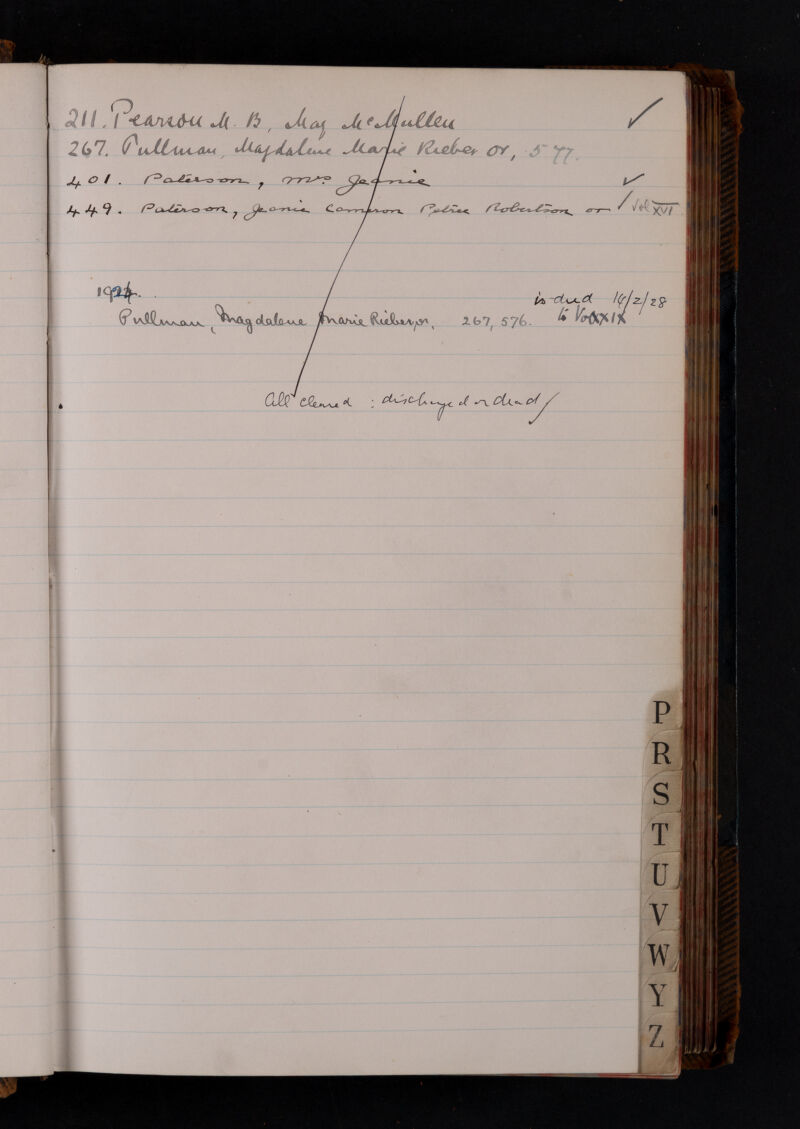 211. Pearson M. B, May McMullen ✓
267. Pullman, Magdalene Marie Rieber or, 577.
401. Paterson, Mrs Jeanie ✓
449. Paterson, Jeanie Cameron Petrie Robertson or ✓ Vol XVI
1924.
is dead 14/2/28
Pullman, Magdalene Marie Rieber, or, 267, 576. to Vol XXIX
All cleared : discharged or dead
P
R
S
T
U
V
W
Y
Z